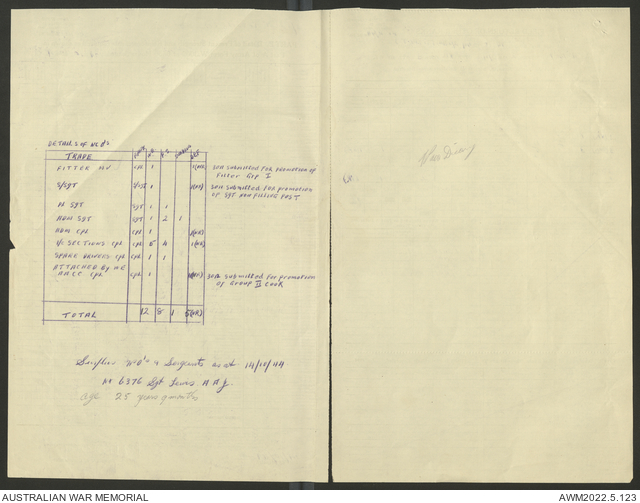 DETAILS OF NCO's
TRADE RANK W.E. P.S. REF
FITTER MV CPL 1 1(OR) 50A submitted for promotion of
Fitter Grp I
S/SGT S/SGT 1 1(OR) 50A submitted for promotion
of SGT now filling POST
PL SGT SGT 1 1
ADM SGT SGT 1 2 1
ADM CPL CPL 1 1(OR)
I/C SECTIONS CPL CPL 5 4 1(OR)
SPARE DRIVERS CPL CPL 1 1
ATTACHED BY W.E
AACC CPL CPL 1 1(OR) 50A submitted for promotion
of Group II COOK
TOTAL 12 8 1 5(OR)
Surplus WO's & Sergeants as at 14/10/44
6376 Sgt Lewis A A J.
age 25 years 9 months
War Diary
AUSTRALIAN WAR MEMORIAL
AWM2022.5.123